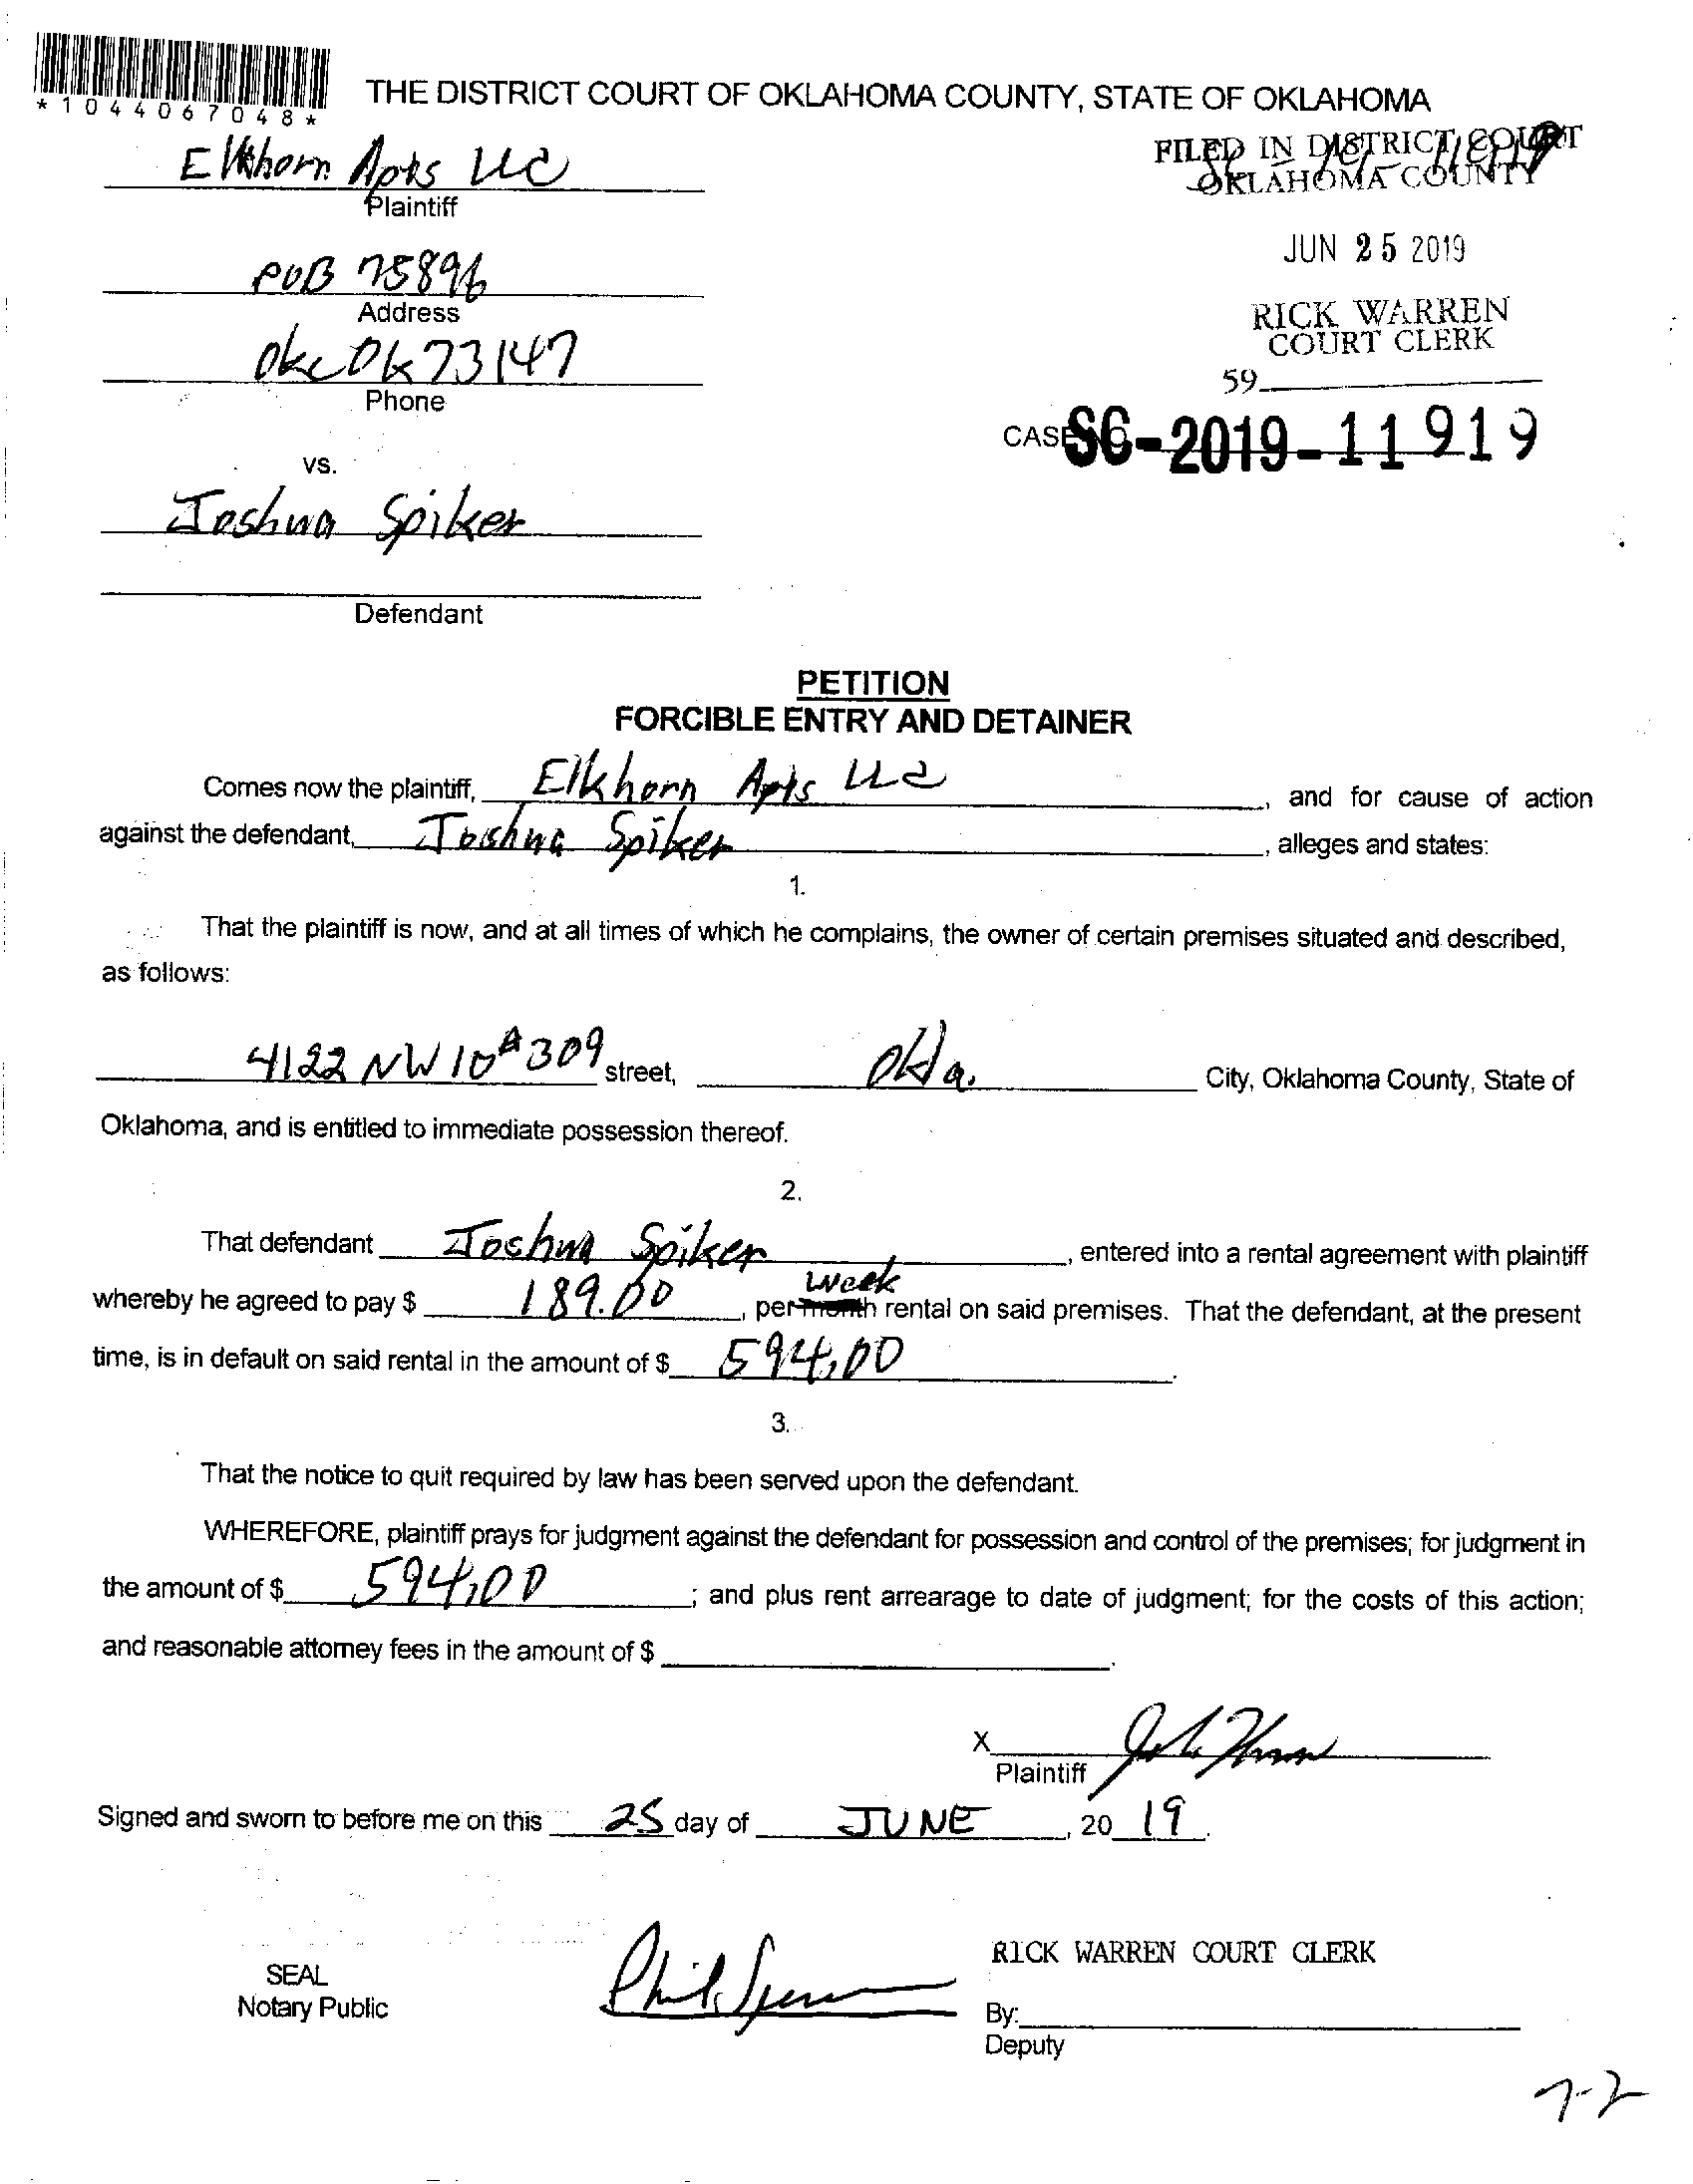 *1044067048*
THE DISTRICT COURT OF OKLAHOMA COUNTY, STATE OF OKLAHOMA
Elkhorn Apts LLC
Plaintiff
FILED IN DISTRICT COURT
OKLAHOMA COUNTY
POB 75896
Address
JUN 25 2019
RICK WARREN
COURT CLERK
Okc Ok 73147
Phone
59
CASE NO SC-2019-11919
vs.
Joshua Spiker
Defendant
PETITION
FORCIBLE ENTRY AND DETAINER
Comes now the plaintiff, Elkhorn Apts LLC, and for cause of action
against the defendant, Joshua Spiker, alleges and states:
1.
That the plaintiff is now, and at all times of which he complains, the owner of certain premises situated and described,
as follows:
4122 NW 10 # 309 street, Okla. City, Oklahoma County, State of
Oklahoma, and is entitled to immediate possession thereof.
2.
That defendant Joshua Spiker, entered into a rental agreement with plaintiff
whereby he agreed to pay $ 189.00, per month week rental on said premises. That the defendant, at the present
time, is in default on said rental in the amount of $ 594.00.
3.
That the notice to quit required by law has been served upon the defendant.
WHEREFORE, plaintiff prays for judgment against the defendant for possession and control of the premises; for judgment in
the amount of $ 594.00; and plus rent arrearage to date of judgment; for the costs of this action;
and reasonable attorney fees in the amount of $ .
X
Plaintiff
Signed and sworn to before me on this 25 day of JUNE, 20 19.
RICK WARREN COURT CLERK
SEAL
Notary Public
By:
Deputy
7-2